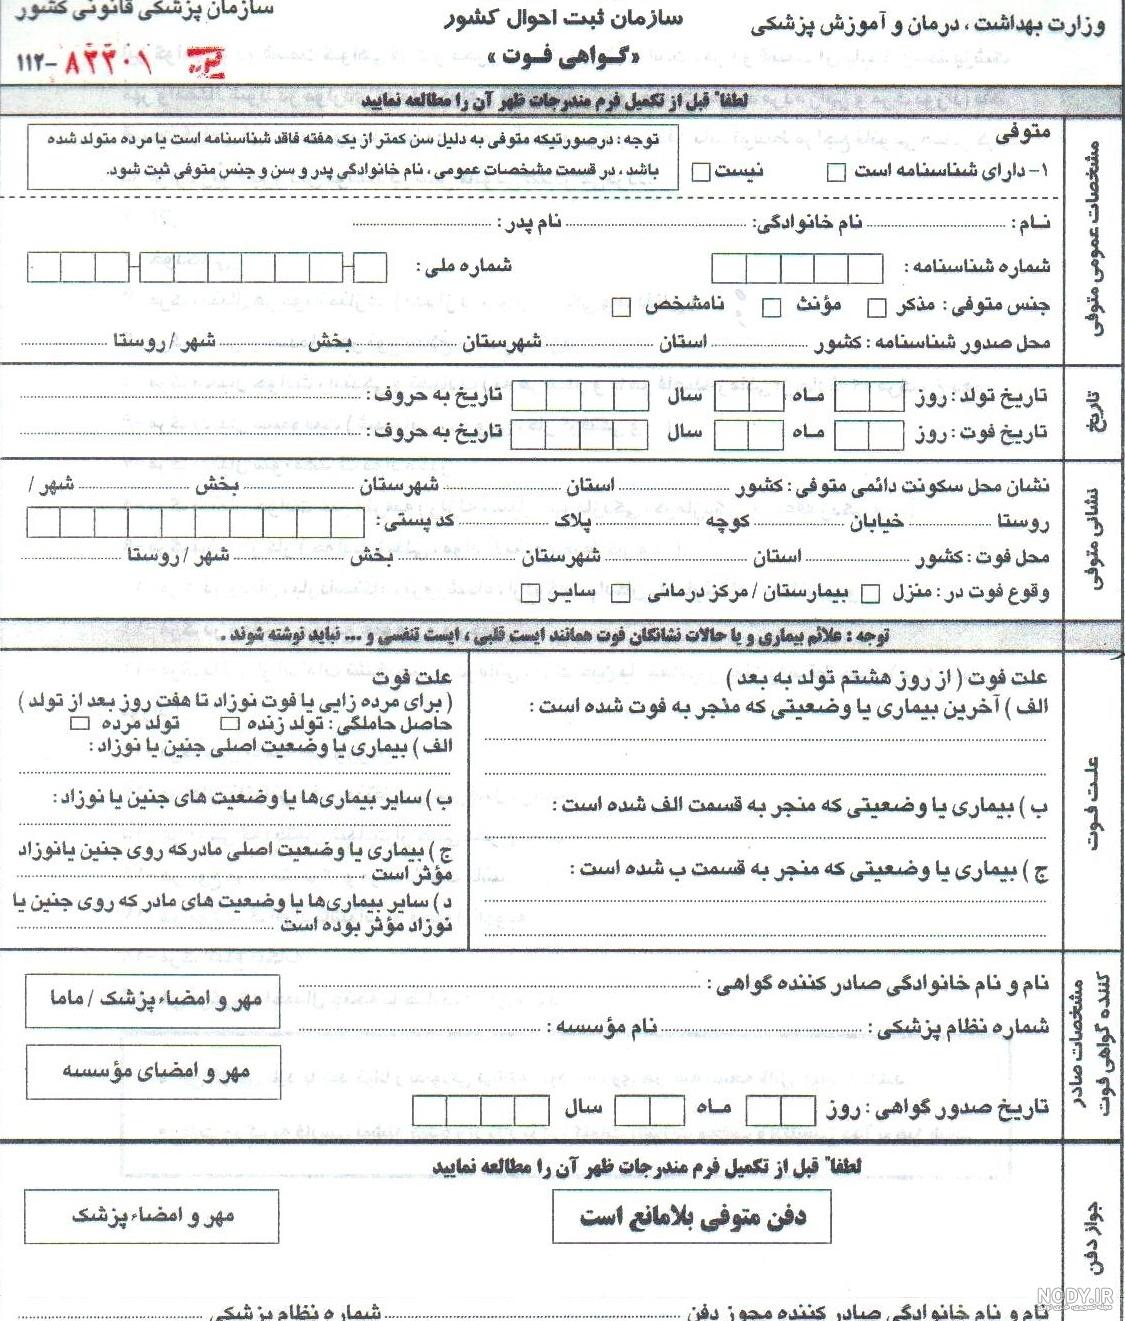 وزارت بهداشت ، درمان و آموزش پزشکی
سازمان ثبت احوال کشور
سازمان پزشکی قانونی کشور
«گواهی فوت»
۱۱۲-۸۲۲۰۱
لطفاً قبل از تکمیل فرم مندرجات ظهر آن را مطالعه نمایید
مشخصات عمومی متوفی
متوفی
۱- دارای شناسنامه است نیست
توجه : درصورتیکه متوفی به دلیل سن کمتر از یک هفته فاقد شناسنامه است یا مرده متولد شده
باشد ، در قسمت مشخصات عمومی ، نام خانوادگی پدر و سن و جنس متوفی ثبت شود.
نام : نام خانوادگی: نام پدر:
شماره شناسنامه : شماره ملی :
جنس متوفی : مذکر مؤنث نامشخص
محل صدور شناسنامه : کشور استان شهرستان بخش شهر / روستا
تاریخ
تاریخ تولد : روز ماه سال تاریخ به حروف:
تاریخ فوت : روز ماه سال تاریخ به حروف:
نشانی متوفی
نشان محل سکونت دائمی متوفی : کشور استان شهرستان بخش شهر /
روستا خیابان کوچه پلاک کد پستی :
محل فوت : کشور استان شهرستان بخش شهر / روستا
وقوع فوت در : منزل بیمارستان / مرکز درمانی سایر
توجه : علائم بیماری و یا حالات نشانگان فوت همانند ایست قلبی ، ایست تنفسی و ... نباید نوشته شوند .
علت فوت
علت فوت ( از روز هشتم تولد به بعد )
الف ) آخرین بیماری یا وضعیتی که منجر به فوت شده است :
ب ) بیماری یا وضعیتی که منجر به قسمت الف شده است :
ج ) بیماری یا وضعیتی که منجر به قسمت ب شده است :
علت فوت
( برای مرده زایی یا فوت نوزاد تا هفت روز بعد از تولد )
حاصل حاملگی : تولد زنده تولد مرده
الف ) بیماری یا وضعیت اصلی جنین یا نوزاد :
ب ) سایر بیماری‌ها یا وضعیت های جنین یا نوزاد :
ج ) بیماری یا وضعیت اصلی مادر که روی جنین یا نوزاد
مؤثر است
د ) سایر بیماری‌ها یا وضعیت های مادر که روی جنین یا
نوزاد مؤثر بوده است
مشخصات صادر
کننده گواهی فوت
نام و نام خانوادگی صادر کننده گواهی :
مهر و امضاء پزشک / ماما
شماره نظام پزشکی : نام مؤسسه :
مهر و امضای مؤسسه
تاریخ صدور گواهی : روز ماه سال
جواز دفن
لطفاً قبل از تکمیل فرم مندرجات ظهر آن را مطالعه نمایید
دفن متوفی بلامانع است
مهر و امضاء پزشک
نام و نام خانوادگی صادر کننده مجوز دفن شماره نظام پزشکی
NODY.IR